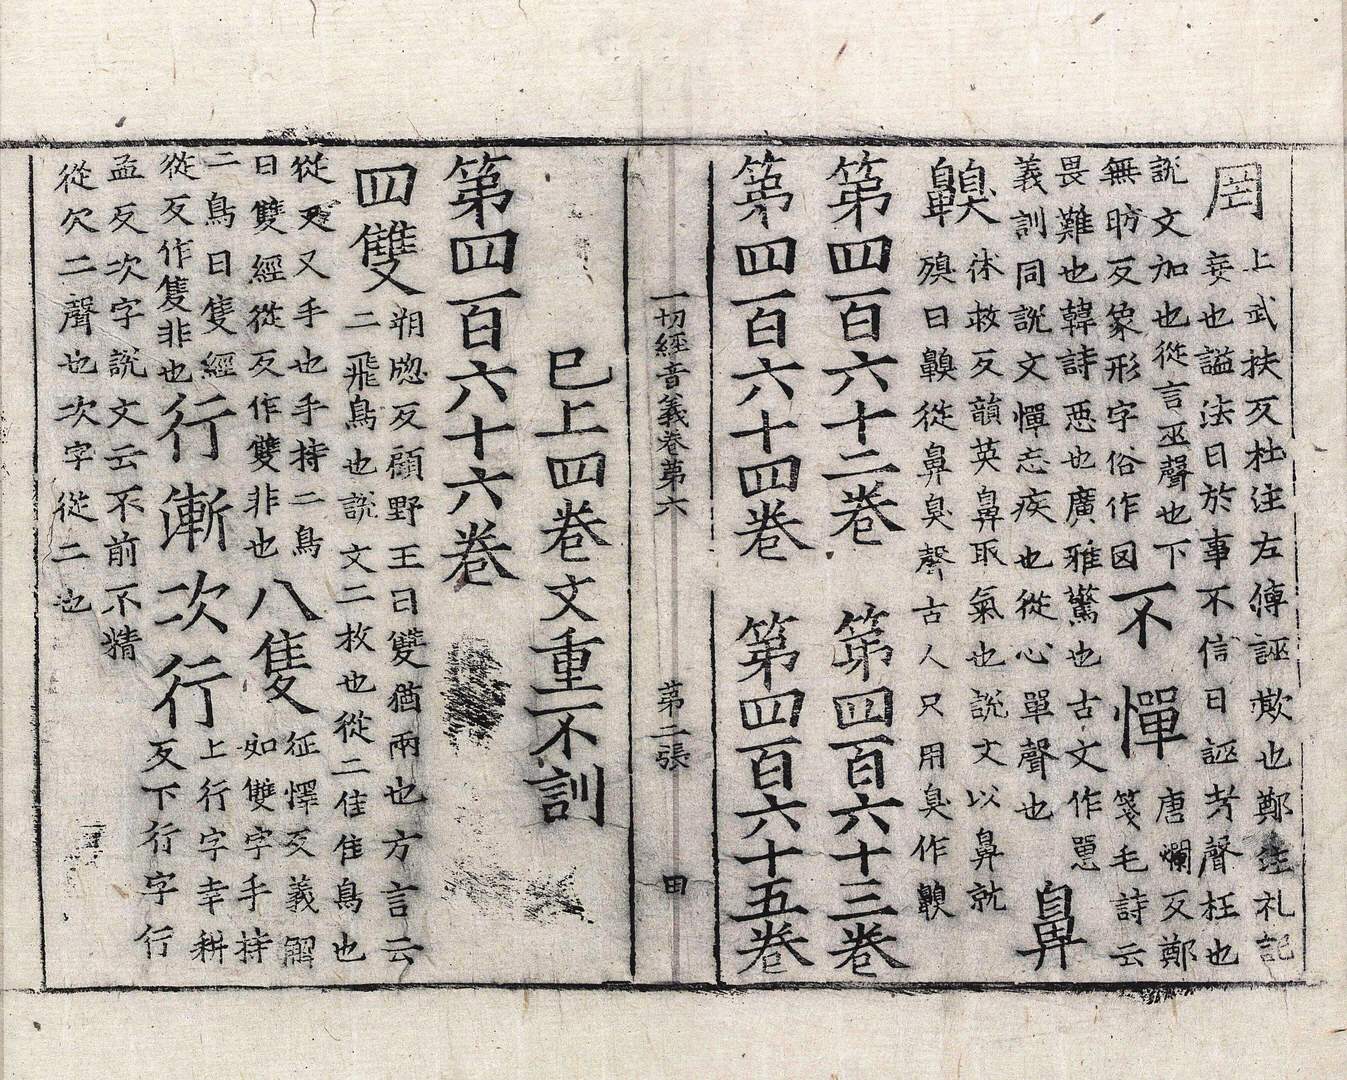 罔
上武扶反杜注左傳誣欺也鄭注礼記
妄也謚法曰於事不信曰誣考聲枉也
說文加也從言巫聲也下
無昉反象形字俗作罔
不憚
唐爛反鄭
箋毛詩云
畏難也韓詩惡也廣雅驚也古文作㦊
義訓同說文憚忘疾也從心單聲也
鼻
齅
休救反韻英鼻取氣也說文以鼻就
殠曰齅從鼻臭聲古人只用臭作齅
第四百六十二卷 第四百六十三卷
第四百六十四卷 第四百六十五卷
一切經音義卷第六 第二張 田
已上四卷文重不訓
第四百六十六卷
四雙
朔牕反顧野王曰雙猶兩也方言云
二飛鳥也說文二枚也從二隹隹鳥也
從又又手也手持二鳥
曰雙經從反作雙非也
八隻
征懌反義解
如雙字手持
二鳥曰隻經
從反作隻非也
行漸次行
上行字幸耕
反下行字行
孟反次字說文云不前不精
從欠二聲也次字從二也